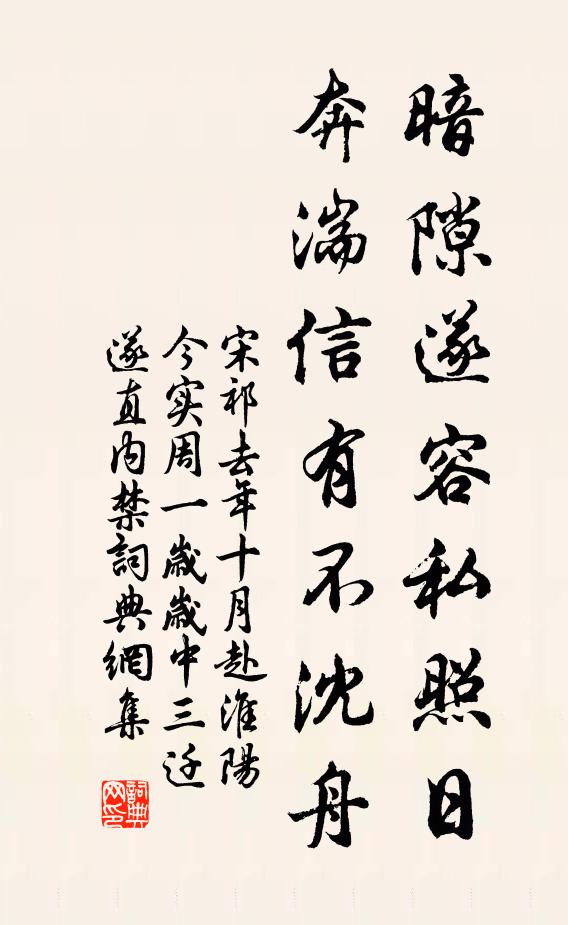 暗隙遂容私照日
奔湍信有不沈舟
宋祁去年十月赴淮陽
今实周一歲歲中三迁
遂直内禁詞典網集
詞典网印